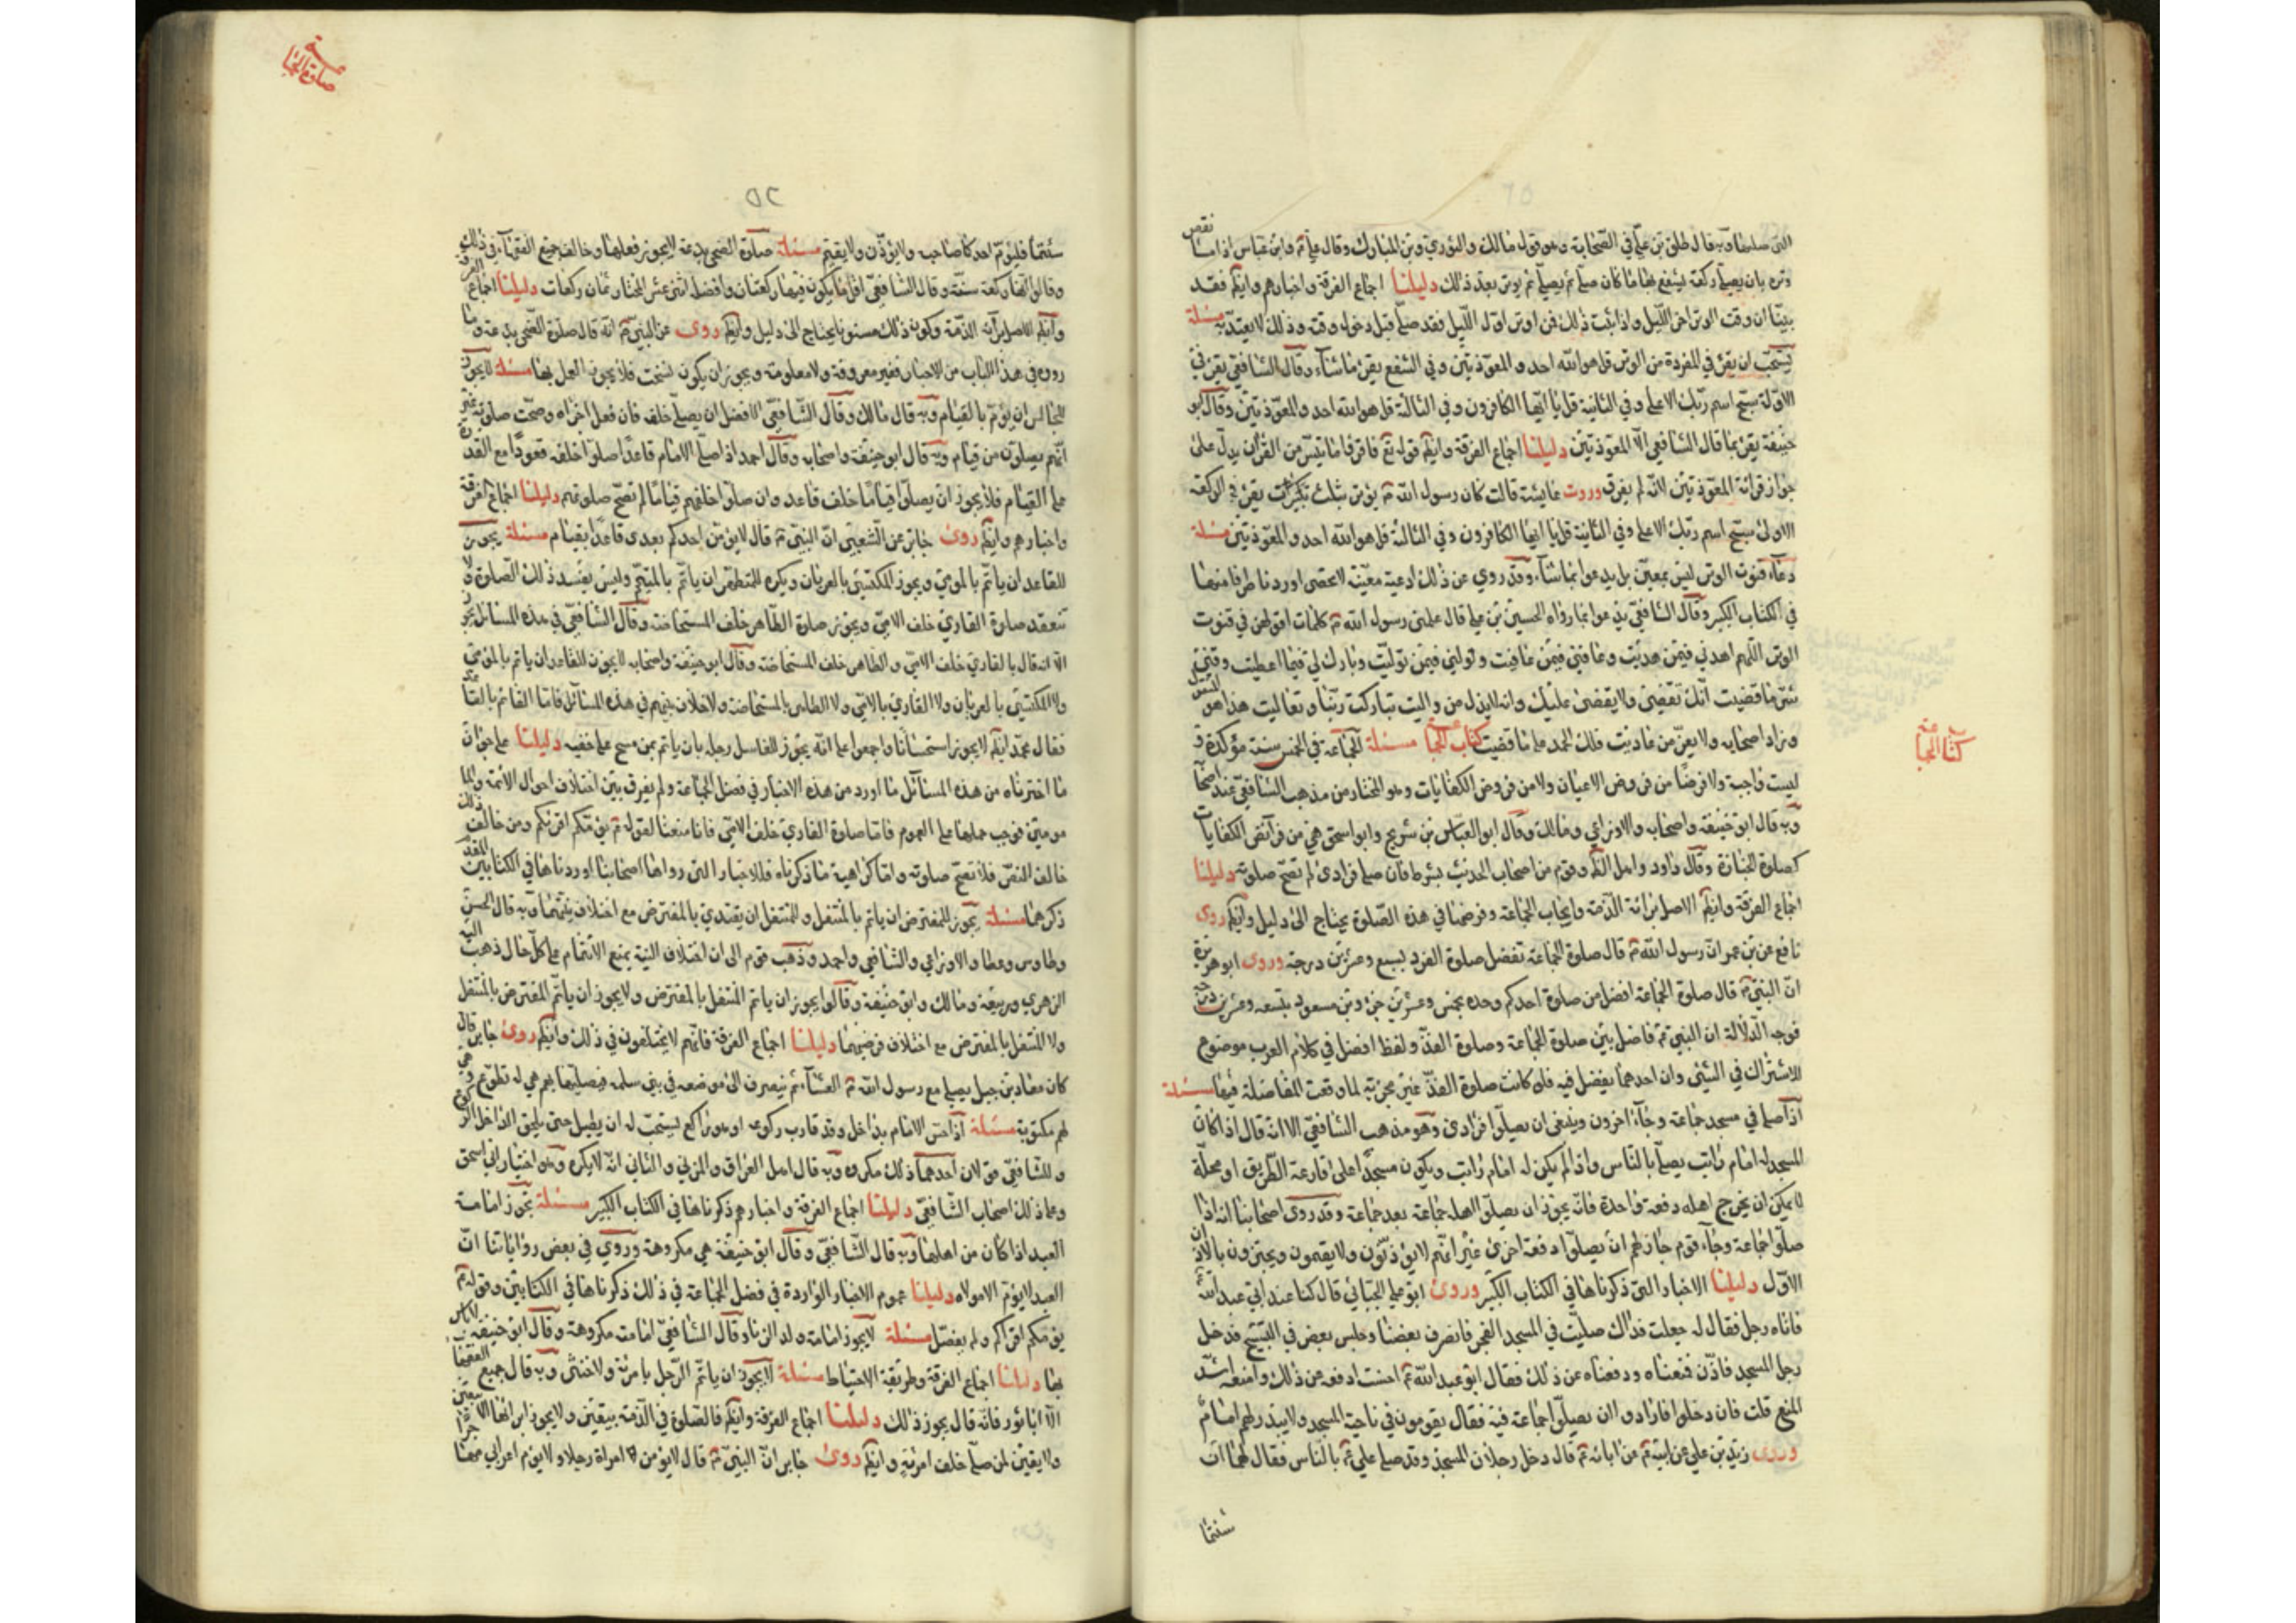 التي صلیها وبه قال طلق بن علي في الصحابة وهو قول مالك والثوري وبن المبارك وقال علي ع وابن عباس اذا نقض
وتره بان یصلي ركعة لیشفع بها ما كان صلی ثم یصلي ثم یوتر بعد ذلك دلیلنا اجماع الفرقة واخبارهم وایضا فقد
بینا ان وقت الوتر اخر اللیل واذا ثبت ذلك فمن اوتر اول اللیل فقد صلی قبل دخول وقته وذلك لا یعتد به مسئلة
یستحب ان یقرء في المفردة من الوتر قل هو الله احد والمعوذتین وفي الشفع یقرء ما شاء وقال الشافعي یقرء في
الاولة سبح اسم ربك الاعلی وفي الثانیة قل یا ایها الكافرون وفي الثالثة قل هو الله احد والمعوذتین وقال ابو
حنیفة یقرء بما قال الشافعي الا المعوذتین دلیلنا اجماع الفرقة وایضا قوله تع فاقرؤا ما تیسر من القران یدل علی
جواز قرائة المعوذتین لانه لم یفرق وروت عایشة قالت كان رسول الله ص یوتر بثلث یقرء في الركعة
الاولی سبح اسم ربك الاعلی وفي الثانیة قل یا ایها الكافرون وفي الثالثة قل هو الله احد والمعوذتین مسئلة
دعاء قنوت الوتر لیس بمعین بل یدعوا بما شاء وقد روي عن ذلك ادعیة معینة لا تحصی اوردنا طرفا منها
في الكتاب الكبیر وقال الشافعي یدعوا بما رواه الحسین بن علي قال علمني رسول الله ص كلمات اقولهن في قنوت
الوتر اللهم اهدني فیمن هدیت وعافني فیمن عافیت وتولني فیمن تولیت وبارك لي فیما اعطیت وقني
شر ما قضیت انك تقضي ولا یقضی علیك وانه لا یذل من والیت تباركت ربنا وتعالیت هذا هو
وزاد اصحابه ولا یعز من عادیت فلك الحمد علی ما قضیت كتاب الجماعة مسئلة الجماعة في الخمس سنة مؤكدة و
لیست واجبة ولا فرضا من فروض الاعیان ولا من فروض الكفایات وهو المختار من مذهب الشافعي عند اصحابه
وبه قال ابو حنیفة واصحابه والاوزاعي ومالك وقال ابو العباس بن شریح وابو اسحق هي من فرائض الكفایات
كصلوة الجنازة وقال داود واهل الظاهر وقوم من اصحاب الحدیث شرط فان صلی فرادی لم تصح صلوته دلیلنا
اجماع الفرقة وایضا الاصل برائة الذمة وایجاب الجماعة وفرضها في هذه الصلوة یحتاج الی دلیل وایضا روی
نافع عن بن عمر ان رسول الله ص قال صلوة الجماعة تفضل صلوة الفرد بسبع وعشرین درجة وروی ابو هریرة
ان النبي ص قال صلوة الجماعة افضل من صلوة احدكم وحده بخمس وعشرین جزء وبن مسعود بتسعه وعشرین درجة
فوجه الدلالة ان النبي ص فاضل بین صلوة الجماعة وصلوة الفذ ولفظ افضل في كلام العرب موضوع
للاشتراك في الشيء وان احدهما یفضل فیه فلو كانت صلوة الفذ غیر مجزیة لما وقعت المفاضلة فیها مسئلة
اذا صلی في مسجد جماعة وجاء اخرون وینبغي ان یصلوا فرادی وهو مذهب الشافعي الا انه قال اذا كان
المسجد له امام راتب یصلي بالناس واذا لم یكن له امام راتب ویكون مسجدا علی قارعة الطریق او محلة
لا یمكن ان یخرج اهله دفعة واحدة فانه یجوز ان یصلوا اهله جماعة بعد جماعة وقد روی اصحابنا انه اذا
صلوا جماعة وجاء قوم جاز لهم ان یصلوا دفعة اخری غیر انهم لا یؤذنون ولا یقیمون ویجتزون بالاذان
الاول دلیلنا الاخبار التي ذكرناها في الكتاب الكبیر وروی ابو علي الجبائي قال كنا عند ابي عبد الله
فاتاه رجل فقال له جعلت فداك صلیت في المسجد الفجر فانصرف بعضنا وجلس بعض في التسبیح فدخل
رجل المسجد فاذن فمنعناه ودفعناه عن ذلك فقال ابو عبد الله ع احسنت ادفعه عن ذلك وامنعه اشد
المنع قلت فان دخلوا فارادوا ان یصلوا جماعة فیه فقال یقومون في ناحیة المسجد ولا یبدر لهم امام
وروی زید بن علي عن ابیه عن ابائه ع قال دخل رجلان المسجد وقد صلی علي ع بالناس فقال لهما ان
شئتما
كتاب الجماعة
صلوة الجماعة
٥٢
شئتما فلیؤم احدكما صاحبه ولا یؤذن ولا یقیم مسئلة صلوة الضحی بدعة لا یجوز فعلها وخالف جمیع الفقهاء في ذلك
وقالوا انها سنة وقال الشافعي اقل ما یكون فیها ركعتان وافضله اثنی عشر والمختار ثمان ركعات دلیلنا اجماع الفرقة
وایضا الاصل براءة الذمة وكون ذلك مسنونا یحتاج الی دلیل وایضا روی عن النبي ص انه قال صلوة الضحی بدعة وما
روي في هذا الباب من الاخبار فغیر معروفة ولا معلومة ویجوز ان یكون نسخت فلا یجوز العمل بها مسئلة لا یجوز
للجالس ان یؤم بالقیام وبه قال مالك وقال الشافعي الافضل ان یصلي خلفه فان فعل اجزاه وصحت صلوته غیر
انهم یصلون من قیام وبه قال ابو حنیفة واصحابه وقال احمد اذا صلی الامام قاعدا صلوا خلفه قعودا مع القدرة
علی القیام فلا یجوز ان یصلوا قیاما خلف قاعد وان صلوا خلفهم قیاما لم تصح صلوتهم دلیلنا اجماع الفرقة
واخبارهم وایضا روی جابر عن الشعبي ان النبي ص قال لا یؤمن احدكم بعدی قاعدا بقیام مسئلة یجوز
للقاعد ان یاتم بالمومي ویجوز للمكتسي بالعریان ویكره للمتطهر ان یاتم بالمتیمم ولیس یفسد ذلك الصلوة ولا
تنعقد صلوة القاري خلف الامي ویجوز صلوة الطاهر خلف المستحاضة وقال الشافعي في هذه المسائل یجوز
الا انه قال بالقاري خلف الامي والطاهر خلف المستحاضة وقال ابو حنیفة واصحابه لا یجوز للقاعد ان یاتم بالمومي
ولا المكتسي بالعریان ولا القاري بالامي ولا الطاهر بالمستحاضة ولا خلاف بینهم في هذه المسائل فاما القائم بالقاعد
فقال محمد ایضا لا یجوز استحسانا واجمعوا علی انه یجوز للغاسل رجله بان یاتم بمن مسح علی خفیه دلیلنا علی جواز
ما اخترناه من هذه المسائل ما اورد من هذه الاخبار في فضل الجماعة ولم یفرق بین اختلاف احوال الائمة والما
مومین فوجب حملها علی العموم فاما صلوة القاري خلف الامي فانا منعنا لقوله ع یؤمكم اقرئكم ومن خالف ذلك
خالف النص فلا تصح صلوته واما كراهیة ما ذكرناه فللاخبار التي رواها اصحابنا اوردناها في الكتابین المقدم
ذكرهما مسئلة یجوز للمفترض ان یاتم بالمتنفل وللمتنفل ان یقتدي بالمفترض مع اختلاف نیتهما وبه قال الحسن
وطاوس وعطا والاوزاعي والشافعي واحمد وذهب قوم الی ان اختلاف النیة یمنع الائتمام علی كل حال ذهب الیه
الزهري وربیعة ومالك وابو حنیفة وقالوا یجوز ان یاتم المتنفل بالمفترض ولا یجوز ان یاتم المفترض بالمتنفل
ولا المتنفل بالمفترض مع اختلاف فرضیهما دلیلنا اجماع الفرقة فانهم لا یختلفون في ذلك وایضا روی جابر قال
كان معاذ بن جبل یصلي مع رسول الله ص العشاء ثم ینصرف الی موضعه في بني سلمه فیصلیها بهم هي له تطوع وهي
لهم مكتوبة مسئلة اذا احس الامام بداخل وقد قارب ركوعه او هو راكع یستحب له ان یطیل حتی یلحق الداخل الركوع
وللشافعي قولان احدهما ذلك مكروه وبه قال اهل العراق والمزني والثاني انه لا یكره وهو اختیار ابي اسحق
وعامة اصحاب الشافعي دلیلنا اجماع الفرقة واخبارهم ذكرناها في الكتاب الكبیر مسئلة تجوز امامة
العبد اذا كان من اهلها وبه قال الشافعي وقال ابو حنیفة هي مكروهة وروي في بعض روایاتنا ان
العبد لا یؤم الا مولاه دلیلنا عموم الاخبار الواردة في فضل الجماعة في ذلك ذكرناها في الكتابین وقوله ع
یؤمكم اقراكم ولم یفصل مسئلة لا یجوز امامة ولد الزنا وقال الشافعي امامته مكروهة وقال ابو حنیفة لا باس
بها دلیلنا اجماع الفرقة وطریقة الاحتیاط مسئلة لا یجوز ان یاتم الرجل بامرئة ولا خنثی وبه قال جمیع الفقهاء
الا ابا ثور فانه قال یجوز ذلك دلیلنا اجماع الفرقة وایضا فالصلوة في الذمة بیقین ولا یجوز ابراؤها الا بیقین
ولا یقین لمن صلی خلف امرئة وایضا روی جابر ان النبي ص قال لا یؤمن امراة رجلا ولا یؤم اعرابي مهاجرا